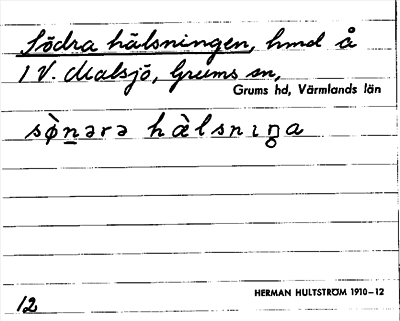 Södra hälsningen, hmd å
1 V. Malsjö, Grums sn,
Grums hd, Värmlands län
sø̀n̲ərə hὰlsnɩŋa
HERMAN HULTSTRÖM 1910–12
12